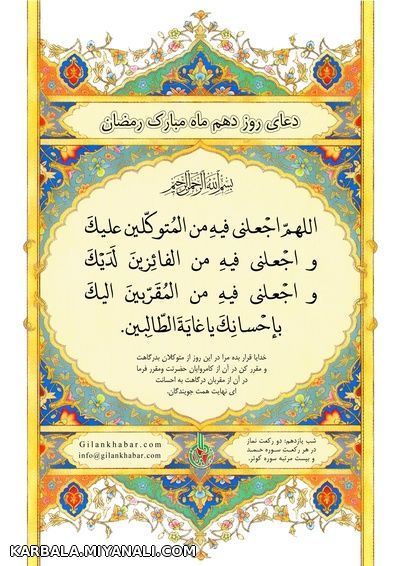 دعای روز دهم ماه مبارک رمضان
بسم الله الرحمن الرحیم
اللهمّ اجْعلنی فیهِ من المُتوکّلین علیكَ
و اجْعلنی فیهِ من الفائِزینَ لَدَیْكَ
و اجْعلنی فیهِ من المُقَرّبینَ الیكَ
بإحْسانِكَ یاغایَةَ الطّالِبین.
خدایا قرار بده مرا در این روز از متوکلان بدرگاهت
و مقرر کن در آن از کامروایان حضرتت ومقرر فرما
در آن از مقربان درگاهت به احسانت
ای نهایت همت جویندگان.
شب یازدهم: دو رکعت نماز
در هر رکعت سوره حمد
و بیست مرتبه سوره کوثر.
Gilankhabar.com
info@gilankhabar.com
KARBALA.MIYANALI.COM